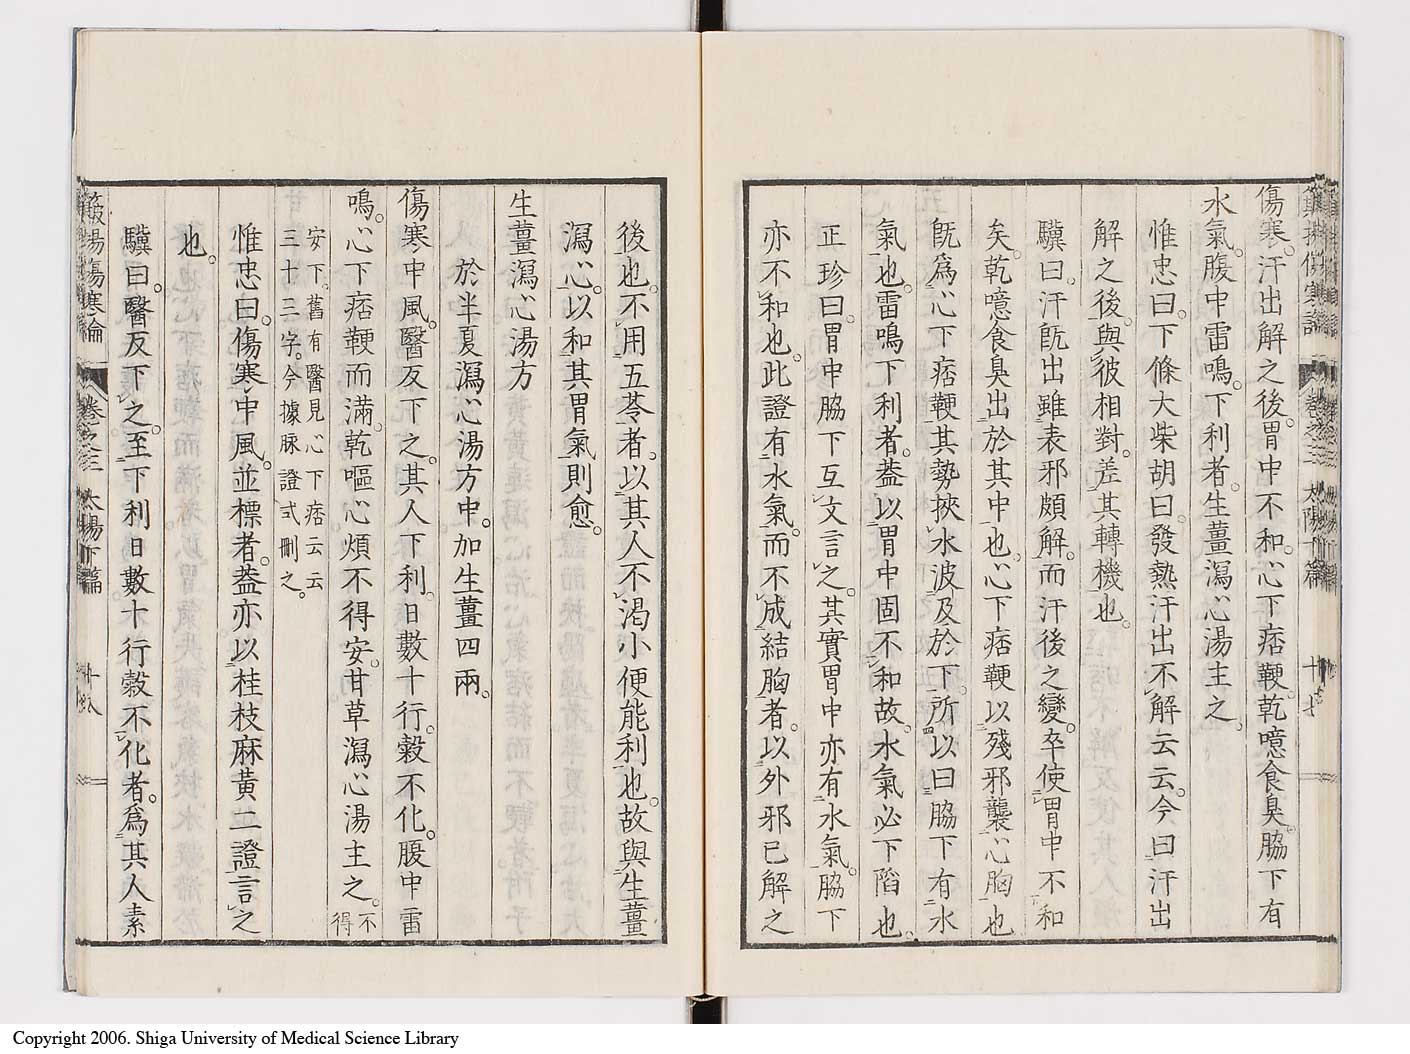 傷寒。汗出解之後。胃中不和。心下痞鞕。乾噫食臭。脇下有
水氣。腹中雷鳴。下利者。生薑瀉心湯主之。
惟忠曰。下條大柴胡曰。發熱汗出不解云云。今曰汗出
解之後。與彼相對。差其轉機也。
驥曰。汗既出雖表邪頗解。而汗後之變。卒使胃中不和
矣。乾噫食臭出於其中也。心下痞鞕以殘邪襲心胸也
既爲心下痞鞕其勢挾水波及於下。所以曰脇下有水
氣也。雷鳴下利者。蓋以胃中固不和故。水氣必下陷也。
正珍曰。胃中脇下互文言之。其實胃中亦有水氣。脇下
亦不和也。此證有水氣。而不成結胸者。以外邪已解之
太陽下篇
後也。不用五苓者。以其人不渴小便能利也。故與生薑
瀉心。以和其胃氣則愈。
生薑瀉心湯方
於半夏瀉心湯方中。加生薑四兩。
傷寒中風。醫反下之。其人下利。日數十行。穀不化。腹中雷
鳴。心下痞鞕而滿。乾嘔心煩不得安。甘草瀉心湯主之。不得
安下。舊有醫見心下痞云云
三十二字。今據脉證式刪之。
惟忠曰。傷寒中風。並標者。蓋亦以桂枝麻黃二證言之
也。
驥曰。醫反下之。至下利日數十行穀不化者。爲其人素
傷寒論 卷之三 太陽下篇 十八
Copyright 2006. Shiga University of Medical Science Library